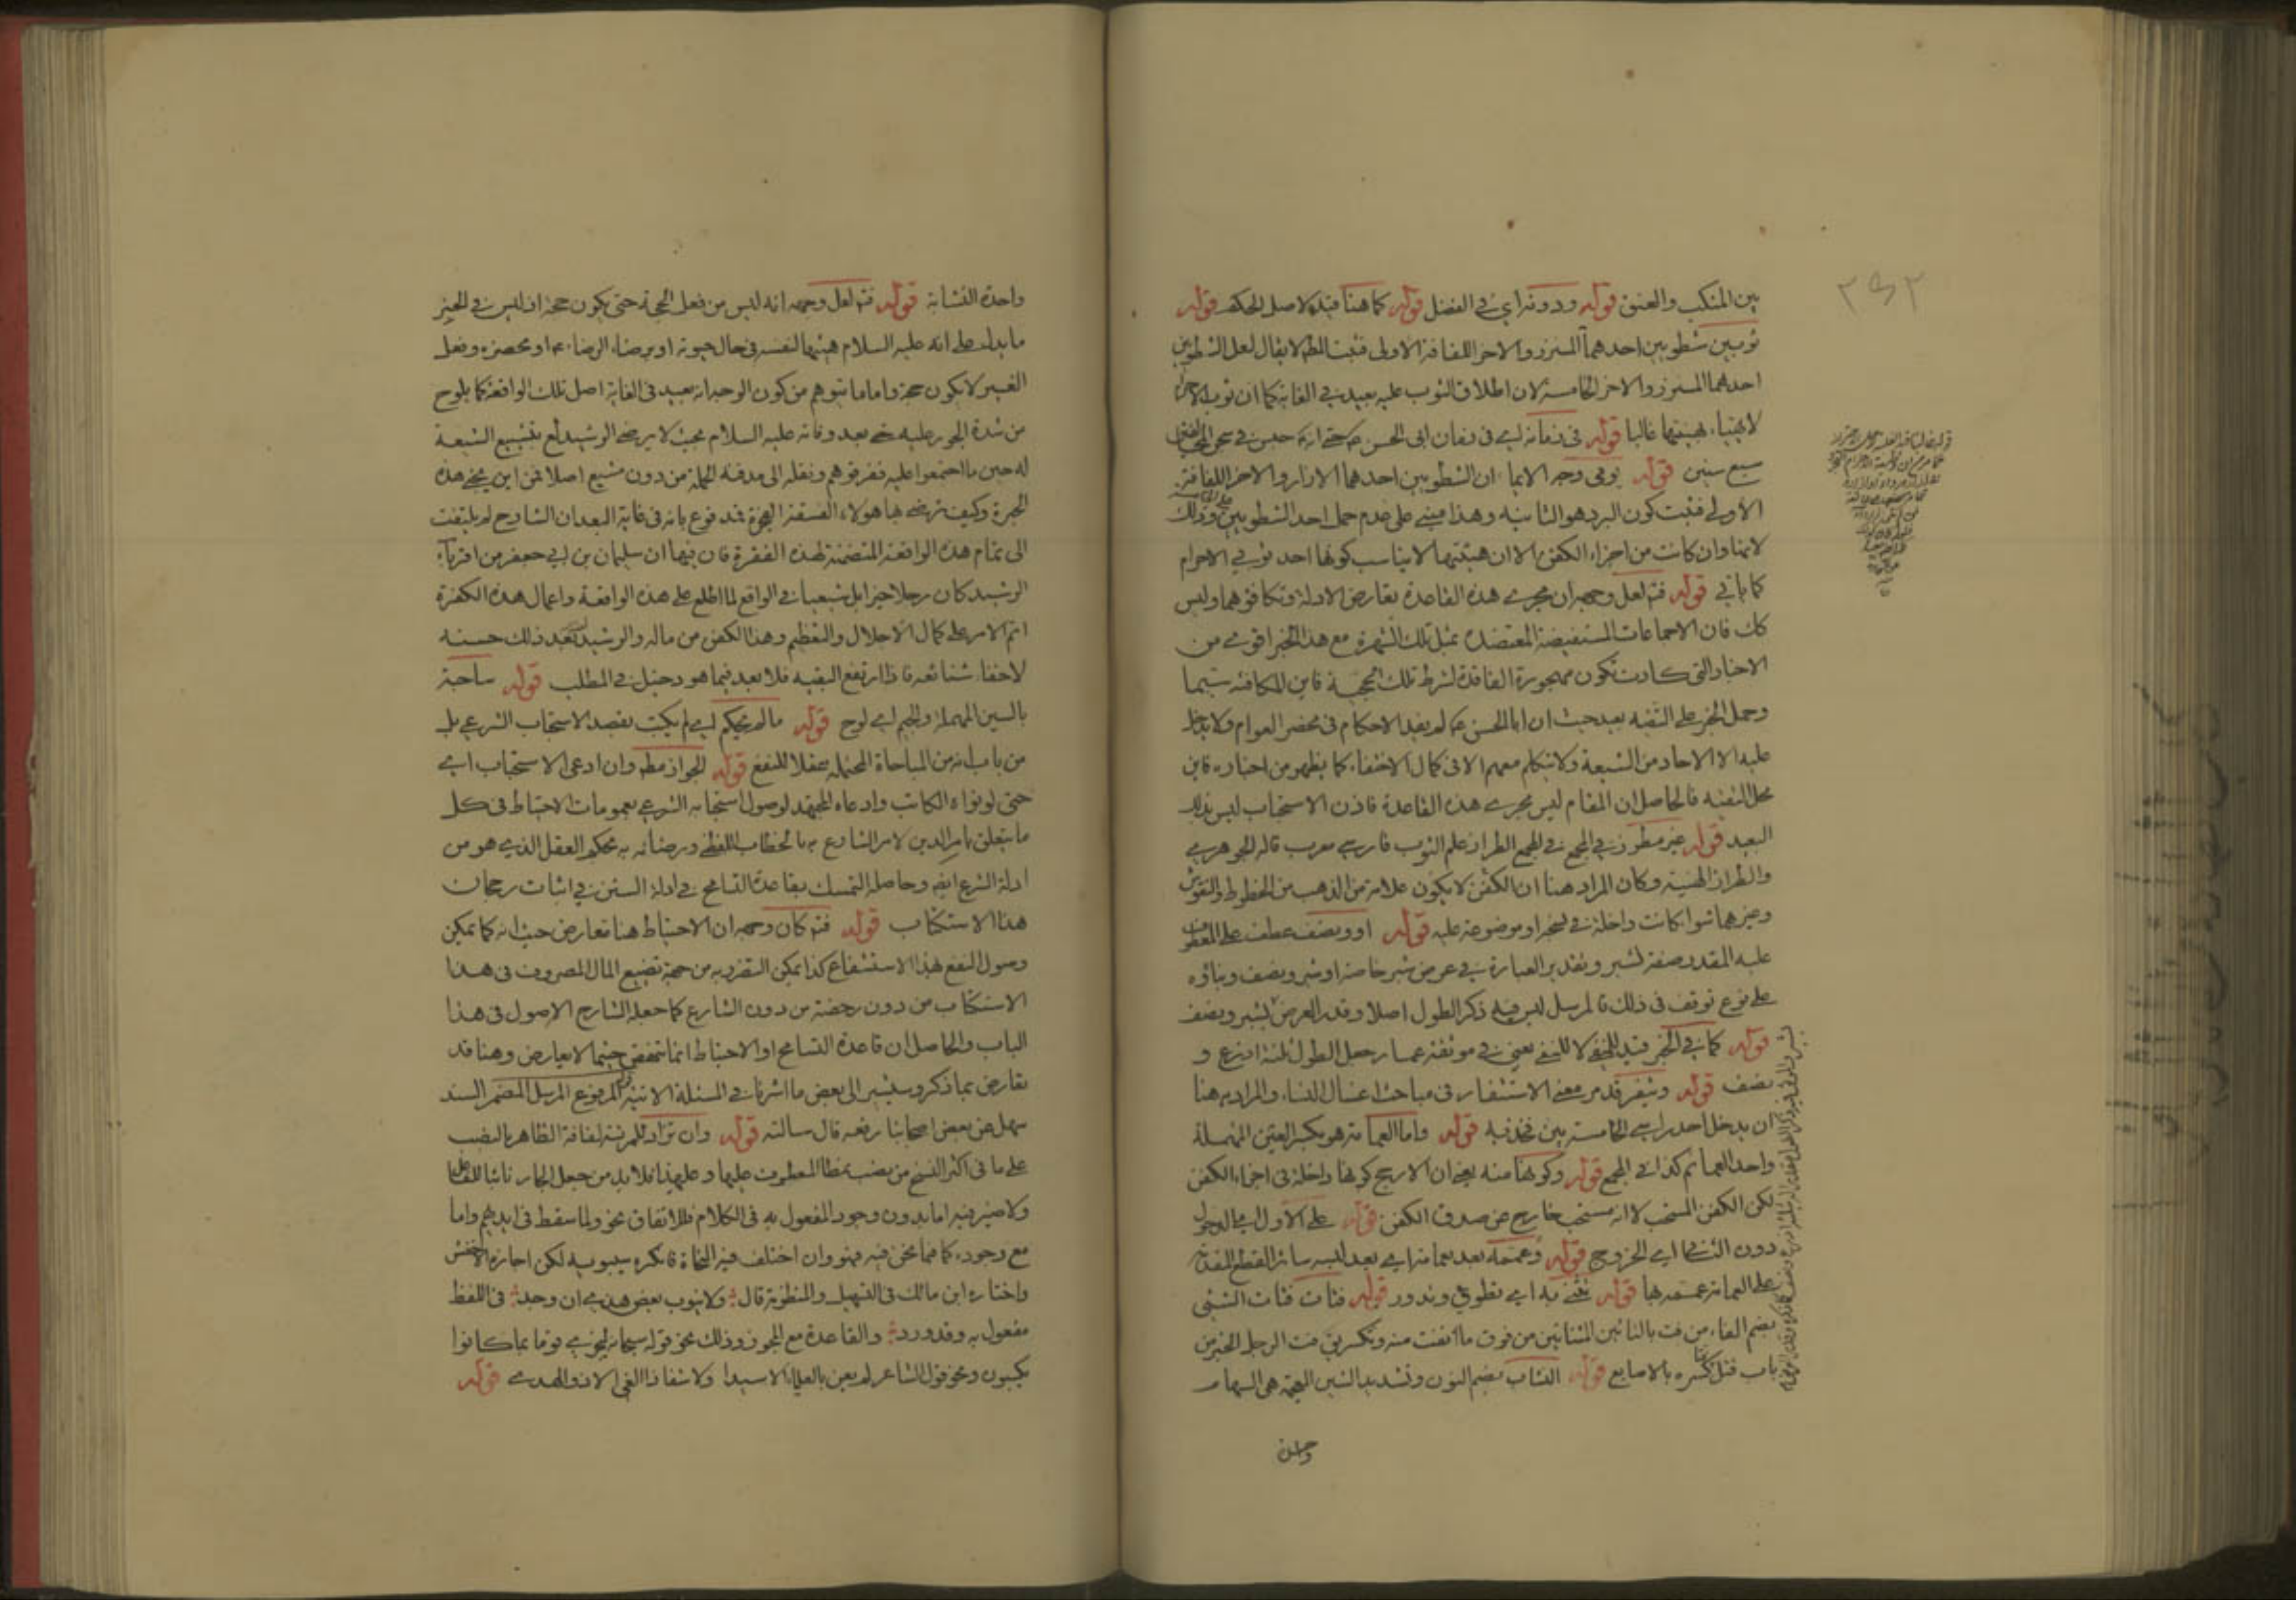 بين المنكب والعنق قوله ودونه اي في الفضل قوله كما هنا قيد لاصل الحكم قوله
ثوبين شطويين احدهما المئزر والاخر اللفافة الاولى فثبت المط لا يقال لعل الشطويين
احدهما المئزر والاخر الخامسة لان اطلاق الثوب عليه بعيد في الغاية كما ان ثوب الاحرام
لا يهيئا بهيئتها غالبا قوله في زمانه اي في زمان ابى الحسن ع حتى انه حبس في سجن
سبع سنين قوله يومى وجه الايماء ان الشطويين احدهما الازار والاخر اللفافة
الاولى فثبت كون البرد هو الثانية وهذا مبنى على عدم حمل احد الشطويين وذلك
لانها وان كانت من اجزاء الكفن الا ان هيئتها لا يناسب كونها احد ثوبي الاحرام
كما ياتي قوله فتم لعل وجهه ان مجرى هذه القاعدة تعارض الادلة وتكافؤهما وليس
كك فان الاجماعات المستفيضة المعتضدة بمثل تلك الشهرة مع هذا الخبر اقوى من
الاخبار التي كادت تكون مهجورة الفاقدة لشرط تلك الحجية فاين المكافئة سيما
وحمل الخبر على التقية بعيد حيث ان ابا الحسن ع لم يفد الاحكام في محضر العوام ولا يدخل
عليه الا الاحاد من الشيعة ولا يتكلم معهم الا في كمال الاختفاء كما يظهر من اخباره فاين
محل التقية فالحاصل ان المقام ليس مجرى هذه القاعدة فاذن الاستحباب ليس بذلك
البعيد قوله غير مطرز في المجمع في المجمع الطراز علم الثوب فارسي معرب قاله الجوهري
والطراز الهيئة وكان المراد هنا ان الكفن لا يكون علامة من الذهب من الخطوط والنقوش
وغيرهما سوا كانت داخلة في نسجه او موضوعة عليه قوله او ونصف عطف على المعطوف
عليه المقدر صفة لشبر وتقدير العبارة في عرض شبر خاصة او شبر ونصف وبناؤه
على نوع توقف في ذلك فالمرسل ليس فيه ذكر الطول اصلا وقدر العرض بشبر ونصف
قوله كما في الخبر قيد للمنفي لا للنفي يعني في موثقة عمار جعل الطول ثلثة اذرع و
نصف قوله ويثفر قد مر معنى الاستثفار في مباحث اغسال النساء والمراد به هنا
ان يدخل احد راسي الخامسة بين فخذيه قوله واما العمامة هو بكسر العين المهملة
واحد العمائم كذا في المجمع قوله وكونها منه يعني ان الارجح كونها داخلة في اجزاء الكفن
لكن الكفن المستحب لا انه مستحب خارج عن صدق الكفن قوله على الاول اي الدخول
دون الثاني اي الخروج قوله وعممه بعد بعمامة اي بعد لبسه سائر القطع المقدمة
على العمامة عممه بها قوله تثنى به اي تطوى وتدور قوله فتات فتات الشئ
بضم الفاء من فت بالتائين المثناتين من فوق ما انفت منه وتكسر يق فت الرجل الخبز من
باب قتل كسره بالاصابع قوله النشاب بضم النون وتشديد الشين المعجمة هى السهام
واحدة النشابة قوله فتم لعل وجهه انه ليس من فعل الحجة حتى يكون حجة اذ ليس في الخبر
ما يدل على انه عليه السلام هيئها لنفسه في حال حيوته او برضاء الرضا ع او بحضرته وفعل
الغير لا يكون حجة واما ما يتوهم من كون الوجه انه بعيد في الغاية اصل تلك الواقعة كما يلوح
من شدة الجور عليه حتى بعد وفاته عليه السلام بحيث لا يرضى الرشيد لع بتشييع الشيعة
له حين ما اجتمعوا عليه ففرقوهم ونقله الى مدفنه الحملة من دون مشيع اصلا فمن اين يجئ هذه
الحبرة وكيف ترضى بها هولاء الفسقة الفجرة فمدفوع بانه في غاية البعد ان الشارح لم يلتفت
الى تمام هذه الواقعة المتضمنة لهذه الفقرة فان فيها ان سليمان بن ابي جعفر من اقرباء
الرشيد كان رجلا خيرا بل شيعيا في الواقع لما اطلع على هذه الواقعة واعمال هذه الكفرة
اتم الامر على كمال الاجلال والتعظيم وهذا الكفن من ماله والرشيد بعد ذلك حسنه
لاخفاء شنائعه فاذا ارتفع التقية فلا بعد فيما هو دخيل في المطلب قوله ساجة
بالسين المهملة والجيم اي لوح قوله ما لم يحكم اي لم يكتب بقصد الاستحباب الشرعي بل
من باب انه من المباحاة المحتملة عقلا للنفع قوله للجواز مطه وان ادعى الاستحباب اي
حتى لو نواه الكاتب وادعاه المجتهد لوصول استحبابه الشرعي بعمومات الاحتياط في كل
ما يتعلق بامر الدين لامر الشارع به بالخطاب اللفظي ورضائه به بحكم العقل الذي هو من
ادلة الشرع ايضا وحاصله التمسك بقاعدة التسامح في ادلة السنن في اثبات رجحان
هذا الاستكتاب قوله فتم كان وجهه ان الاحتياط هنا تعارض حيث انه كما يمكن
وصول النفع لهذا الاستشفاع كذا يمكن التضرر به من جهة تضييع المال المصروف في هذا
الاستكتاب من دون رخصة من دون الشارع كما جعله الشارح الاصول في هذا
الباب والحاصل ان قاعدة التسامح او الاحتياط انما تتحقق حيثما لا يعارض وهنا قد
تعارض بما ذكر ويشير الى بعض ما اشرنا في المسئلة الاتية المرفوع المرسل المضمر السند
سهل عن بعض اصحابنا رفعه قال سالته قوله وان تزاد للمرئة لفافة الظاهر بالنصب
على ما في اكثر النسخ من نصب نمطا المعطوف عليها وعليهذا فلا بد من جعل الجار نائبا للفاعل
ولا ضير فيه اما بدون وجود المفعول به في الكلام فللاتفاق نحو ولما سقط في ايديهم واما
مع وجوده كما فيما نحن فيه فهو وان اختلف فيه النحاة فانكره سيبويه لكن اجازه الاخفش
واختاره ابن مالك في التسهيل والمنظومة قال ولا ينوب بعض هذي ان وجد في اللفظ
مفعول به وقد ورد والقاعدة مع المجوز وذلك نحو قوله سبحانه ليجزي قوما بما كانوا
يكسبون ونحو قول الشاعر لم يعن بالعلياء الا سيدا ولا شفا ذا الغى الا ذو الهدى قوله